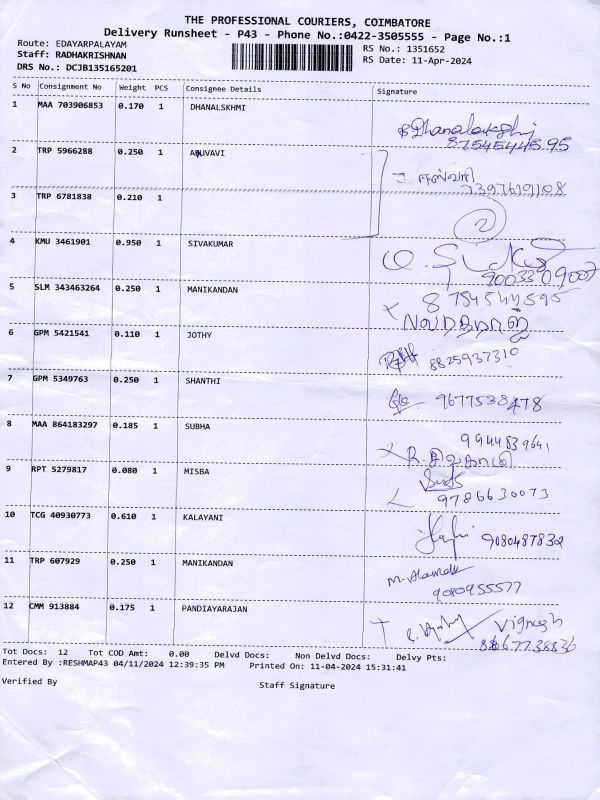 THE PROFESSIONAL COURIERS, COIMBATORE
Delivery Runsheet - P43 - Phone No.:0422-3505555 - Page No.:1
Route: EDAYARPALAYAM RS No.: 1351652
Staff: RADHAKRISHNAN RS Date: 11-Apr-2024
DRS No.: DCJB135165201
S No Consignment No Weight PCS Consignee Details Signature
1 MAA 703906853 0.170 1 DHANALSKHMI
2 TRP 5966288 0.250 1 ARUVAVI
7397619108
3 TRP 6781838 0.210 1
2
4 KMU 3461901 0.950 1 SIVAKUMAR
5 SLM 343463264 0.250 1 MANIKANDAN
6 GPM 5421541 0.110 1 JOTHY
8825937310
7 GPM 5349763 0.250 1 SHANTHI
9677538478
8 MAA 864183297 0.185 1 SUBHA
9944839641
9 RPT 5279817 0.080 1 MISBA
9786630073
10 TCG 40930773 0.610 1 KALAYANI
9080487832
11 TRP 607929 0.250 1 MANIKANDAN
9080955577
12 CMM 913884 0.175 1 PANDIAYARAJAN
Vignesh
Tot Docs: 12 Tot COD Amt: 0.00 Delvd Docs: Non Delvd Docs: Delvy Pts:
Entered By :RESHMAP43 04/11/2024 12:39:35 PM Printed On: 11-04-2024 15:31:41
Verified By Staff Signature